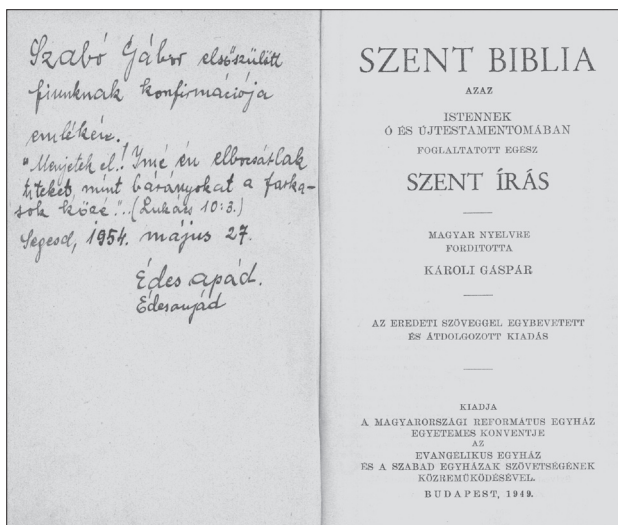 Szabó Gábor elsőszülött
fiunknak konfirmációja
emlékére.
"Menjetek el! Imé én elbocsátlak
titeket, mint bárányokat a farka-
sok közé."..(Lukács 10:3.)
Segesd, 1954. május 27.
Édes apád.
Édesanyád
SZENT BIBLIA
AZAZ
ISTENNEK
Ó ÉS ÚJTESTAMENTOMÁBAN
FOGLALTATOTT EGÉSZ
SZENT ÍRÁS
MAGYAR NYELVRE
FORDITOTTA
KÁROLI GÁSPÁR
AZ EREDETI SZÖVEGGEL EGYBEVETETT
ÉS ÁTDOLGOZOTT KIADÁS
KIADJA
A MAGYARORSZÁGI REFORMÁTUS EGYHÁZ
EGYETEMES KONVENTJE
AZ
EVANGÉLIKUS EGYHÁZ
ÉS A SZABAD EGYHÁZAK SZÖVETSÉGÉNEK
KÖZREMŰKÖDÉSÉVEL.
BUDAPEST, 1949.